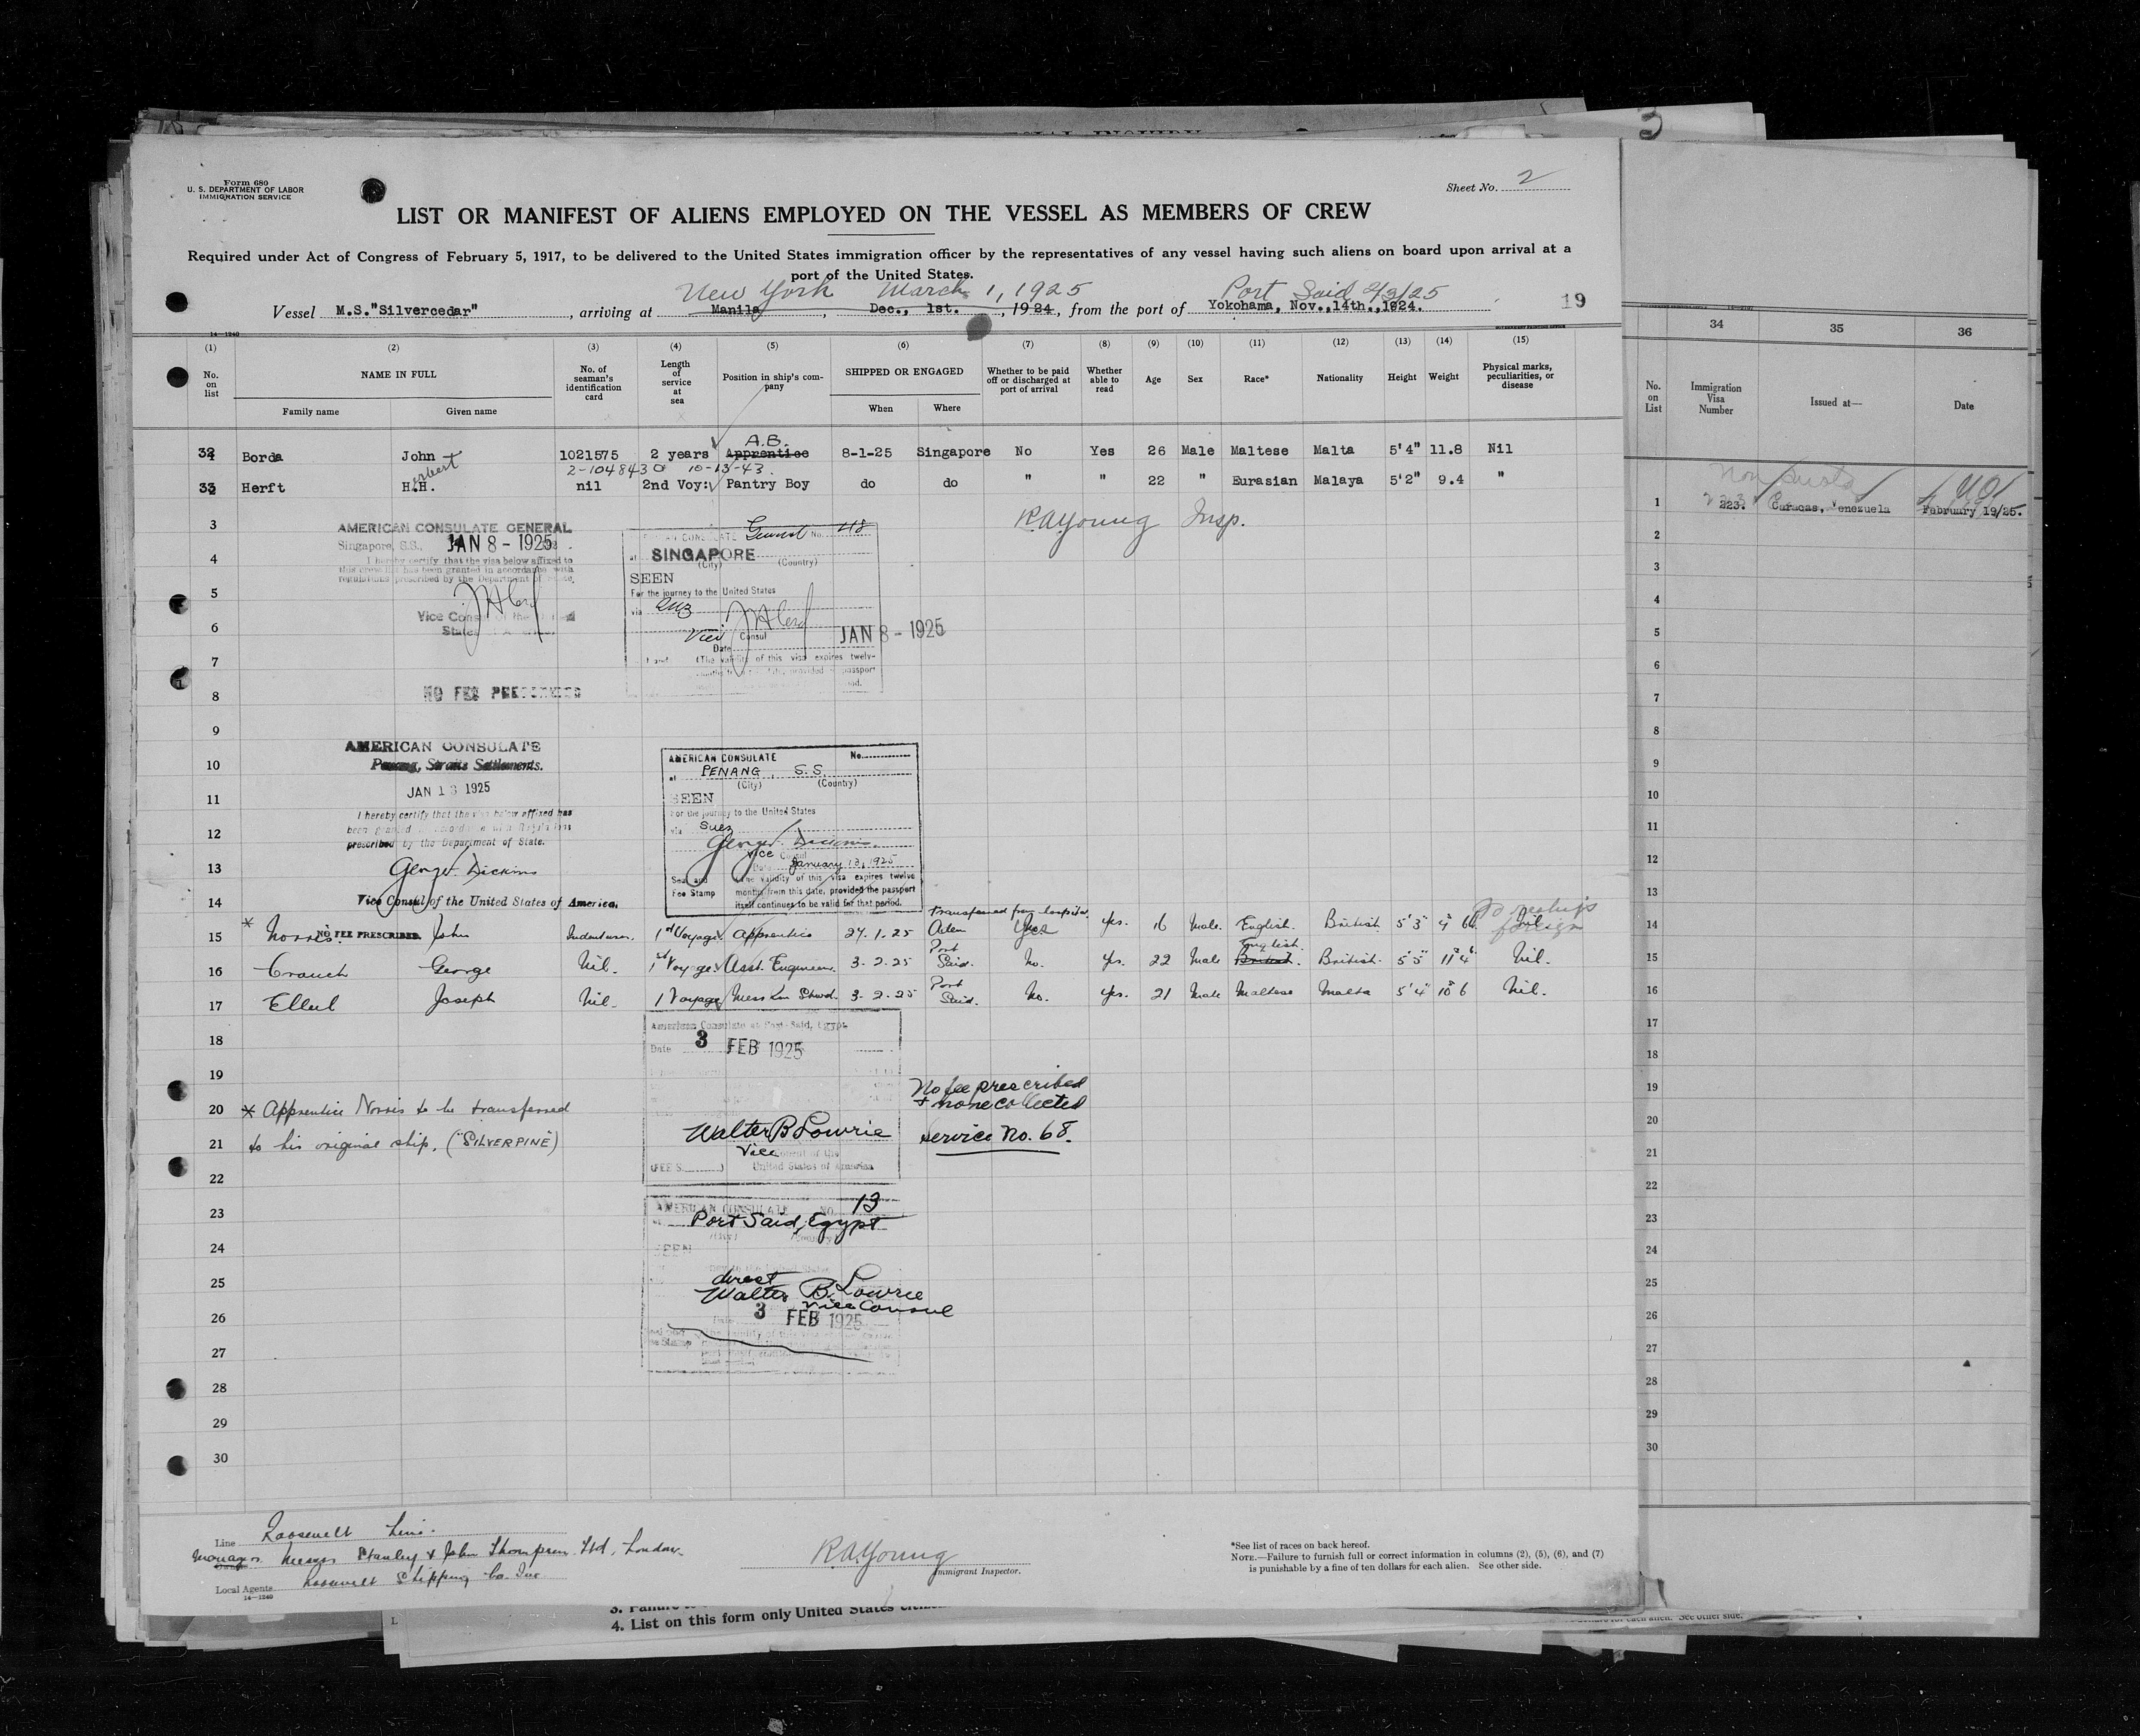 3
Form 680
U. S. DEPARTMENT OF LABOR
IMMIGRATION SERVICE
Sheet No. 2
LIST OR MANIFEST OF ALIENS EMPLOYED ON THE VESSEL AS MEMBERS OF CREW
Required under Act of Congress of February 5, 1917, to be delivered to the United States immigration officer by the representatives of any vessel having such aliens on board upon arrival at a
port of the United States.
New York March 1, 1925 Port Said 2/3/25
Vessel M.S."Silvercedar", arriving at Manila, Dec., 1st., 1924, from the port of Yokohama, Nov.,14th.,1924. 19
14—1240
(1) (2) (3) (4) (5) (6) (7) (8) (9) (10) (11) (12) (13) (14) (15)
No. on list NAME IN FULL No. of seaman's identification card Length of service at sea Position in ship's company SHIPPED OR ENGAGED Whether to be paid off or discharged at port of arrival Whether able to read Age Sex Race* Nationality Height Weight Physical marks, peculiarities, or disease
Family name Given name When Where
A.B.
32 Borda John 1021575 2 years Apprentice 8-1-25 Singapore No Yes 26 Male Maltese Malta 5'4" 11.8 Nil
2-1048430 10-13-43.
33 Herft H.H. nil 2nd Voy: Pantry Boy do do " " 22 " Eurasian Malaya 5'2" 9.4 "
3 RAYoung Insp.
AMERICAN CONSULATE GENERAL
Singapore, S.S., JAN 8 - 1925
I hereby certify that the visa below affixed to
this crew list has been granted in accordance with
regulations prescribed by the Department of State,
Vice Consul of the United
States of America
General No. 418
at SINGAPORE
(City) (Country)
SEEN
For the journey to the United States
via Suez
Vice Consul
Date JAN 8 - 1925
(The validity of this visa expires twelve
4
5
6
7
8
NO FEE PRESCRIBED
9
10
11
12
13
14
AMERICAN CONSULATE
Penang, Straits Settlements.
JAN 13 1925
I hereby certify that the visa below affixed has
been granted in accordance with Regulations
prescribed by the Department of State.
George Dickins
Vice Consul of the United States of America.
AMERICAN CONSULATE No.
at PENANG, S.S.
(City) (Country)
SEEN
For the journey to the United States
via Suez
George Dickins
Vice Consul
Date January 13, 1925
Seal and Fee Stamp
The validity of this visa expires twelve
months from this date, provided the passport
itself continues to be valid for that period.
NO FEE PRESCRIBED
transferred from hospital
* 15 Norris John Indentures. 1st Voyage Apprentice 27.1.25 Aden Yes Yes. 16 Male. English. British. 5'3" Nil
16 Crouch George Nil. 1st Voyage Asst. Engineer. 3-2-25 Port Said. No. Yes. 22 Male British. English. British. 5'5" 11 4 Nil.
17 Ellul Joseph Nil. 1 Voyage Mess Rm Stwd. 3-2-25 Port Said. No. Yes. 21 Male Maltese Malta 5'4" 10 6 Nil.
18
19
American Consulate at Port-Said, Egypt
Date 3 FEB 1925
No fee prescribed
+ none collected
Service No. 68.
Walter B Lowrie
Vice Consul of the
United States of America
(FEE $ )
20 * Apprentice Norris to be transferred
21 to his original ship. ("SILVERPINE")
22
23
24
25
26
27
28
29
30
AMERICAN CONSULATE NO. 13
at Port Said, Egypt
SEEN
direct
Walter B. Lowrie
Vice Consul
3 FEB 1925
Line Roosevelt Line.
Managers Messrs Stanley & John Thompson Ltd, London
Local Agents Roosevelt Shipping Co. Inc.
14—1240
RAYoung
Immigrant Inspector.
*See list of races on back hereof.
NOTE.—Failure to furnish full or correct information in columns (2), (5), (6), and (7)
is punishable by a fine of ten dollars for each alien. See other side.
4. List on this form only United States
34 35 36
No. on List Immigration Visa Number Issued at— Date
1 223. Caracas, Venezuela February 19/25.
2
3
4
5
6
7
8
9
10
11
12
13
14
15
16
17
18
19
20
21
22
23
24
25
26
27
28
29
30
See other side.